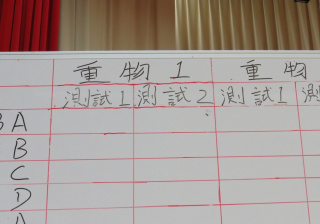 重物1 重物
測試1 測試2 測試1 測
BA
B
C
D
A